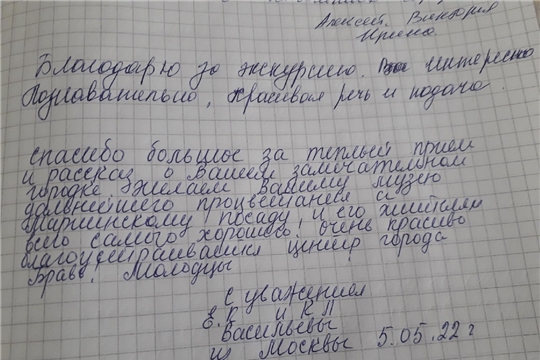 Алексей. Виктория
Ирина
Благодарю за экскурсию. интересно
познавательно, красивая речь и подача.
спасибо большое за теплый прием
и рассказ о Вашем замечательном
городке. Желаем Вашему музею
дальнейшего процветания и
Мариинскому Посаду и его жителям
всего самого хорошего! очень красиво
благоустраивается центр города
Браво! Молодцы
с уважением
Е.К и К Л
Васильевы
из Москвы 5.05.22 г